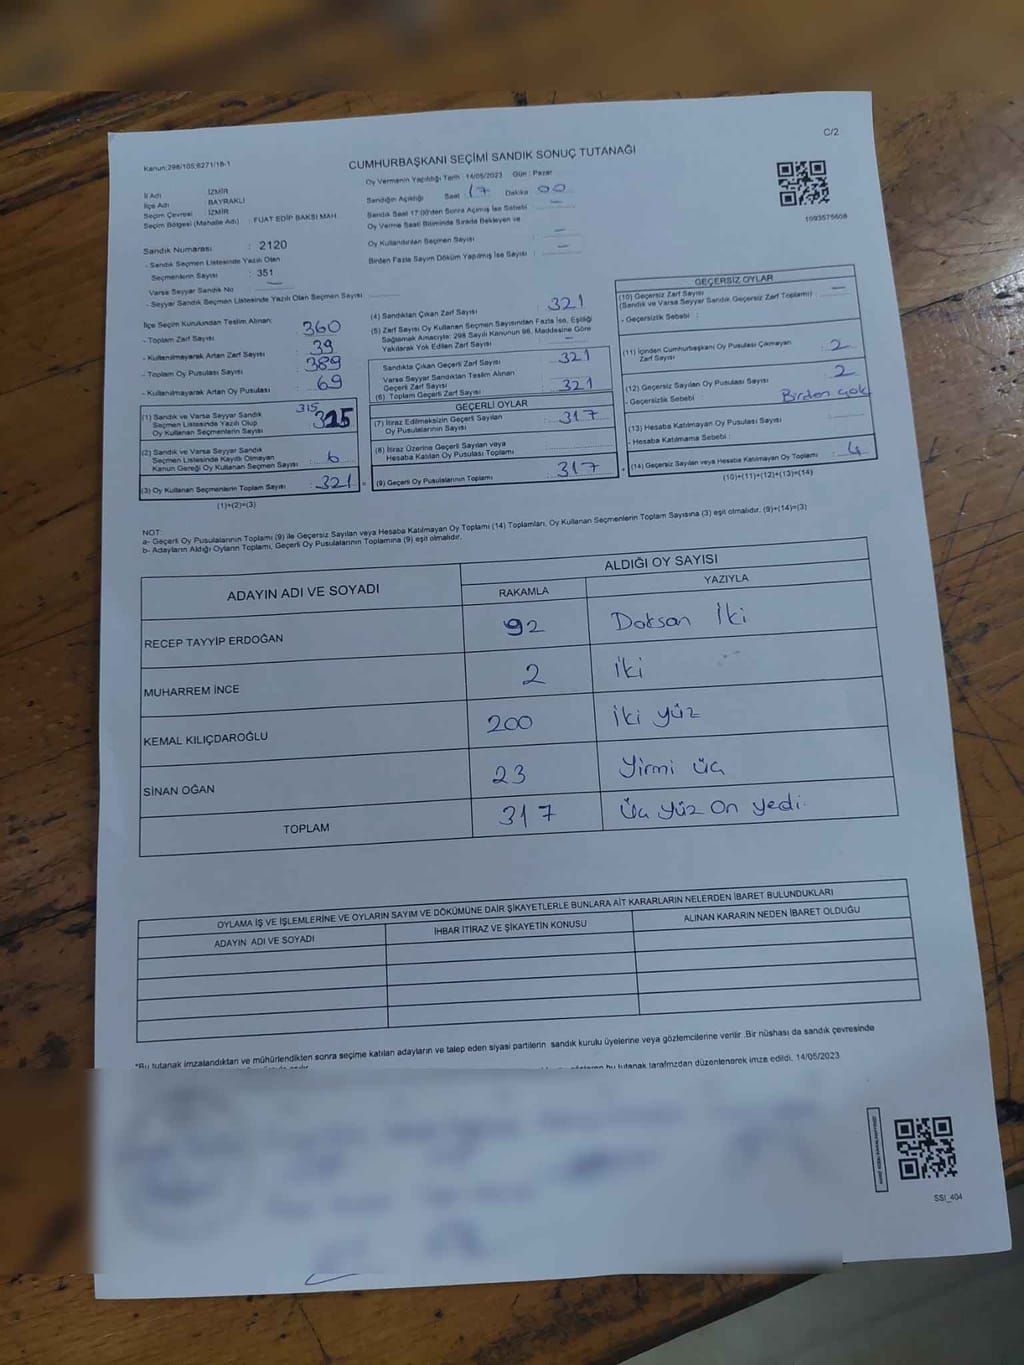 C/2
Kanun:298/105;6271/18-1
CUMHURBAŞKANI SEÇİMİ SANDIK SONUÇ TUTANAĞI
Oy Vermenin Yapıldığı Tarih : 14/05/2023 Gün : Pazar
İl Adı : İZMİR
İlçe Adı : BAYRAKLI
Seçim Çevresi : İZMİR
Seçim Bölgesi (Mahalle Adı) : FUAT EDİP BAKSI MAH.
Sandığın Açıldığı Saat : 17 Dakika 00
Sandık Saat 17:00'den Sonra Açılmış İse Sebebi : —
Oy Verme Saati Bitiminde Sırada Bekleyen ve
Oy Kullandırılan Seçmen Sayısı : —
Birden Fazla Sayım Döküm Yapılmış İse Sayısı : —
1093575608
Sandık Numarası : 2120
- Sandık Seçmen Listesinde Yazılı Olan
Seçmenlerin Sayısı : 351
Varsa Seyyar Sandık No : —
- Seyyar Sandık Seçmen Listesinde Yazılı Olan Seçmen Sayısı :
İlçe Seçim Kurulundan Teslim Alınan:
- Toplam Zarf Sayısı : 360
- Kullanılmayarak Artan Zarf Sayısı : 39
- Toplam Oy Pusulası Sayısı : 389
- Kullanılmayarak Artan Oy Pusulası : 69
(1) Sandık ve Varsa Seyyar Sandık
Seçmen Listesinde Yazılı Olup
Oy Kullanan Seçmenlerin Sayısı : 315 315
(2) Sandık ve Varsa Seyyar Sandık
Seçmen Listesinde Kayıtlı Olmayan
Kanun Gereği Oy Kullanan Seçmen Sayısı : 6
(3) Oy Kullanan Seçmenlerin Toplam Sayısı : 321
(1)+(2)=(3)
(4) Sandıktan Çıkan Zarf Sayısı : 321
(5) Zarf Sayısı Oy Kullanan Seçmen Sayısından Fazla İse, Eşitliği
Sağlamak Amacıyla; 298 Sayılı Kanunun 98. Maddesine Göre
Yakılarak Yok Edilen Zarf Sayısı : —
Sandıkta Çıkan Geçerli Zarf Sayısı : 321
Varsa Seyyar Sandıktan Teslim Alınan
Geçerli Zarf Sayısı :
(6) Toplam Geçerli Zarf Sayısı : 321
GEÇERLİ OYLAR
(7) İtiraz Edilmeksizin Geçerli Sayılan
Oy Pusulalarının Sayısı : 317
(8) İtiraz Üzerine Geçerli Sayılan veya
Hesaba Katılan Oy Pusulası Toplamı :
(9) Geçerli Oy Pusulalarının Toplamı : 317
GEÇERSİZ OYLAR
(10) Geçersiz Zarf Sayısı
(Sandık ve Varsa Seyyar Sandık Geçersiz Zarf Toplamı) : —
- Geçersizlik Sebebi :
(11) İçinden Cumhurbaşkanı Oy Pusulası Çıkmayan
Zarf Sayısı : 2
(12) Geçersiz Sayılan Oy Pusulası Sayısı : 2
- Geçersizlik Sebebi : Birden çok
(13) Hesaba Katılmayan Oy Pusulası Sayısı :
- Hesaba Katılmama Sebebi :
(14) Geçersiz Sayılan veya Hesaba Katılmayan Oy Toplamı : 4
(10)+(11)+(12)+(13)=(14)
NOT:
a- Geçerli Oy Pusulalarının Toplamı (9) ile Geçersiz Sayılan veya Hesaba Katılmayan Oy Toplamı (14) Toplamları, Oy Kullanan Seçmenlerin Toplam Sayısına (3) eşit olmalıdır. (9)+(14)=(3)
b- Adayların Aldığı Oyların Toplamı, Geçerli Oy Pusulalarının Toplamına (9) eşit olmalıdır.
ADAYIN ADI VE SOYADI
ALDIĞI OY SAYISI
RAKAMLA YAZIYLA
RECEP TAYYİP ERDOĞAN 92 Doksan İki
MUHARREM İNCE 2 İki
KEMAL KILIÇDAROĞLU 200 İki yüz
SİNAN OĞAN 23 Yirmi üç
TOPLAM 317 Üç yüz On yedi.
OYLAMA İŞ VE İŞLEMLERİNE VE OYLARIN SAYIM VE DÖKÜMÜNE DAİR ŞİKAYETLERLE BUNLARA AİT KARARLARIN NELERDEN İBARET BULUNDUKLARI
ADAYIN ADI VE SOYADI İHBAR İTİRAZ VE ŞİKAYETİN KONUSU ALINAN KARARIN NEDEN İBARET OLDUĞU
*Bu tutanak imzalandıktan ve mühürlendikten sonra seçime katılan adayların ve talep eden siyasi partilerin sandık kurulu üyelerine veya gözlemcilerine verilir. Bir nüshası da sandık çevresinde
bu tutanak tarafımızdan düzenlenerek imza edildi. 14/05/2023
SSI_404